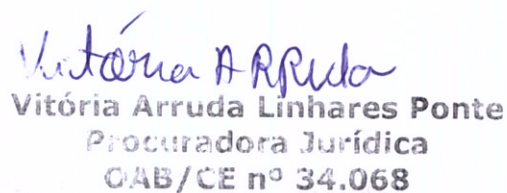 Vitória ARRuda
Vitória Arruda Linhares Ponte
Procuradora Jurídica
OAB/CE nº 34.068